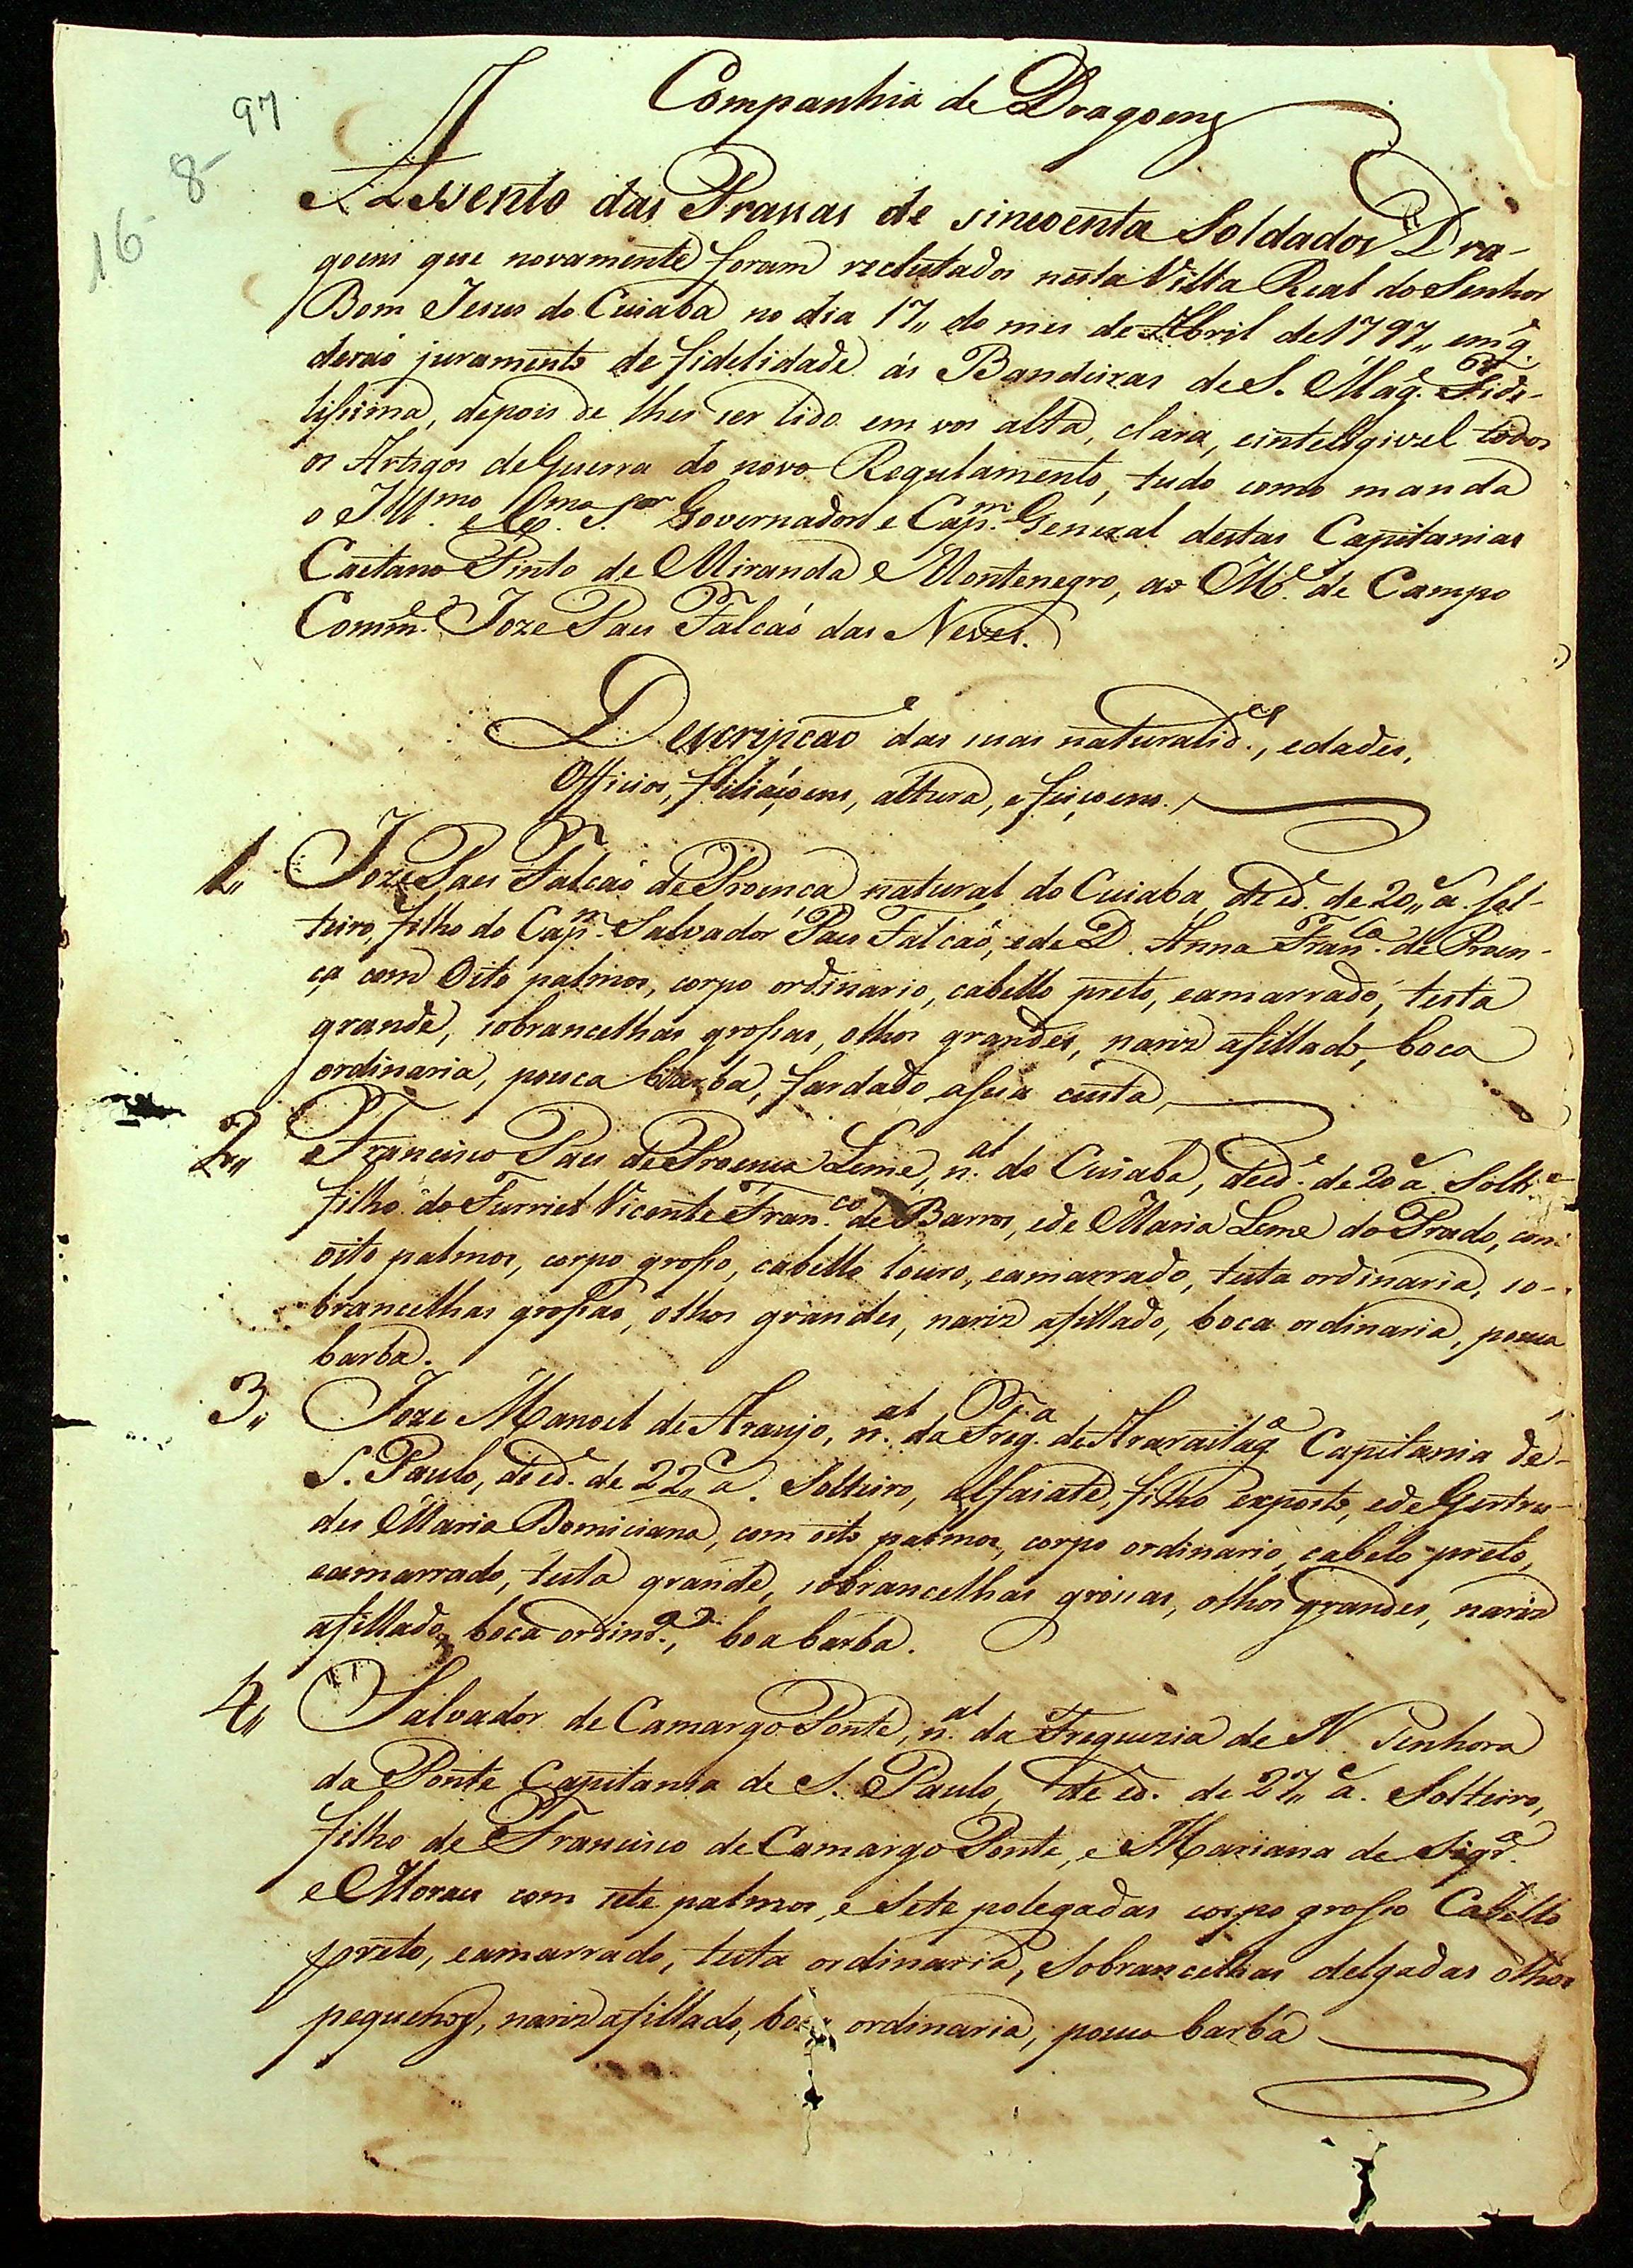 97
8-
16-
Companhia de Dragoens
Assento das Prassas de sincoenta Soldados Dra-
goens que novamente foram reclutados nesta Villa Real do Senhor
Bom Jesus do Cuiabá no dia 17,, do mes de Abril de 1797,, em q.e
deraó juramento de fidelidade ás Bandeiras de S. Mag.e Fide-
lissima, depois de lhes ser lido em vos alta, clara, e inteligivel todos
os Artigos de Guerra do novo Regulamento, tudo como manda
o Ill.mo e Ex.mo S.or Governador e Cap.m General destas Capitanias
Caetano Pinto de Miranda Montenegro, ao M.e de Campo
Comm.e Joze Paes Falcaó das Neves.
Descripcaó das suas naturalid.es, edades,
Officios, filiaçoens, altura, e feiçoens.
1,, Joze Paes Falcaó de Proença natural do Cuiaba de id.e de 20,, a. sol-
teiro, filho do Cap.m Salvador Paes Falcaó, e de D. Anna Fran.ca de Proen-
ça com Oito palmos, corpo ordinario, cabello preto, e amarrado, testa
grande, sobrancelhas grossas, olhos grandes, nariz afillado, boca
ordinaria, pouca barba, fardado a sua custa,
2,, Francisco Paes de Proença Leme, n.al do Cuiaba, de ed.e de 20 a. Soltr.o
filho do Furriel Vicente Fran.co de Barros, e de Maria Leme do Prado, com
oito palmos, corpo grosso, cabello louro, e amarrado, testa ordinaria, so-
brancelhas grossas, olhos grandes, nariz afillado, boca ordinaria, pouca
barba.
3,, Joze Manoel de Araujo, n.al da Freg.a de Araraitag.a Capitania de
S. Paulo, de ed.e de 22,, a. Solteiro, alfaiate, filho exposto, e de Gertru-
des Maria Domiciana, com oito palmos, corpo ordinario, cabelo preto,
e amarrado, testa grande, sobrancelhas grossas, olhos grandes, nariz
afillado, boca ordin.a, boa barba.
4,, Salvador de Camargo Ponte, n.al da Freguezia de N. Senhora
da Ponte Capitania de S. Paulo, de ed. de 27,, a. Solteiro,
filho de Francisco de Camargo Ponte, e Mariana de Siqr.a
e Moraes com sete palmos, e Sete polegadas corpo grosso Cabello
preto, e amarrado, testa ordinaria, Sobrancelhas delgadas olhos
pequenos, nariz afillado, boca ordinaria, pouca barba